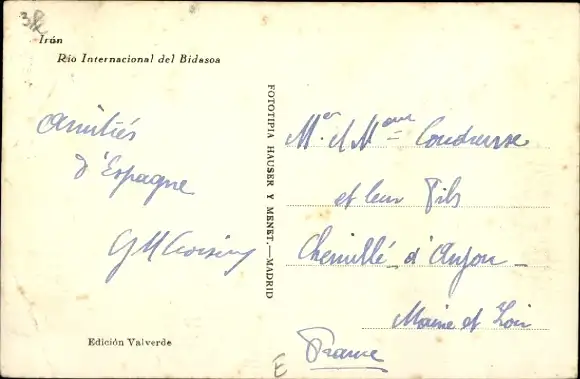 Irún
Río Internacional del Bidasoa
Amitiés
d'Espagne
FOTOTIPIA HAUSER Y MENET.—MADRID
Mer et Mme
et leur Fils
Chemillé d'Anjou
Maine et Loir
France
Edición Valverde
E